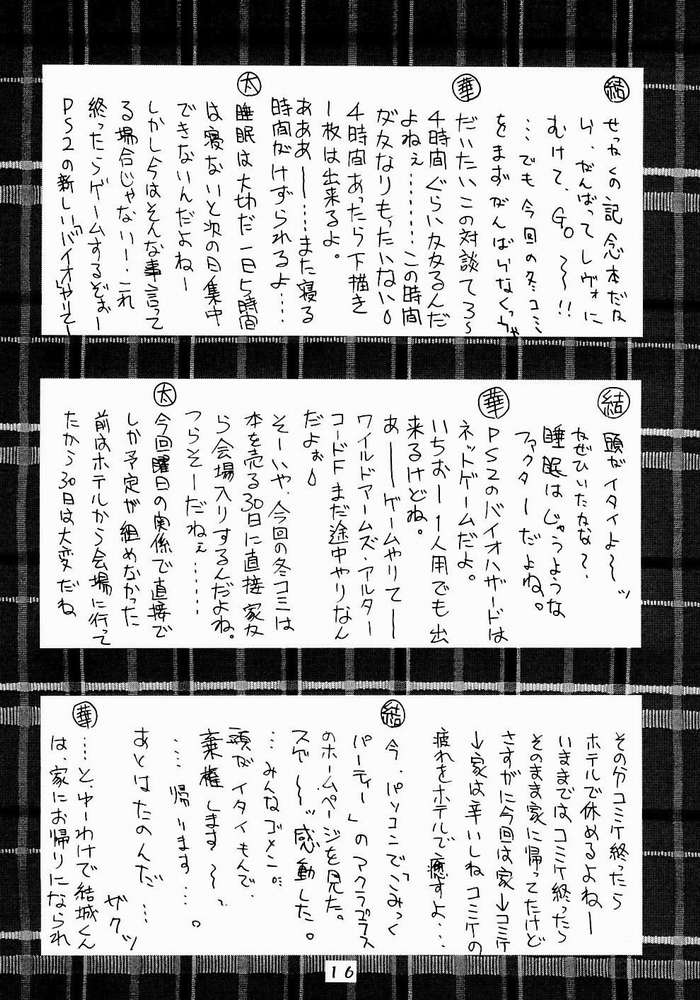 結 せっかくの記念本だな
い、がんばってレヴォに
むけて、GO〜〜!!
…でも今回の冬コミ
をまずがんばらなくっちゃ
華 だいたいこの対談てろ〜
4時間ぐらい
よねぇ……この時間
がかなりもったいない
4時間あったら下描き
1枚は出来るよ。
あああー……また寝る
時間がけずられるよ…
太 睡眠は大切だ一日5時間
は寝ないと次の日集中
できないんだよねー
しかし今はそんな事言って
る場合じゃないー これ
終ったらゲームするぞぉー
PS2の新しい「バイオ」やりてー
結 頭がイタイよ〜ッ
なぜひいたかな?
睡眠はじゅうような
ファクターだよね。
華 PS2のバイオハザードは
ネットゲームだよ。
いちおー1人用でも出
来るけどね。
あーーゲームやりてーー
ワイルドアームズ・アルター
コードFまだ途中やりなん
だよぉ
そーいや、今回の冬コミは
本を売る30日に直接家
ら会場入りするんだよね。
つらそーだねぇ……
太 今回曜日の関係で直接で
しか予定が組めなかった
前はホテルから会場に行って
たから30日は大変だね
その分コミケ終ったら
ホテルで休めるよねー
いままではコミケ終ったら
そのまま家に帰ってたけど
さすがに今回は家→コミケ
→家は辛いしねコミケの
疲れをホテルで癒すよ…
結 今、パソコンで「こみっく
パーティー」のアクラプラス
のホームページを見た。
スゲ〜〜ッ感動した。
…みんなゴメン。
頭がイタイもんで、
棄権します〜〜。
…帰ります…。
あとはたのんだ…
ザクッ
華 …と、ゆーわけで結城くん
は、家にお帰りになられ
16